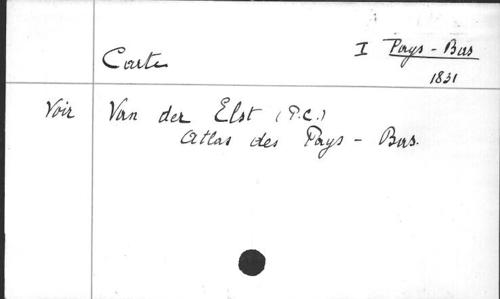 I Pays-Bas
1831
Carte
Voir Van der Elst (P.C.)
Atlas des Pays-Bas.